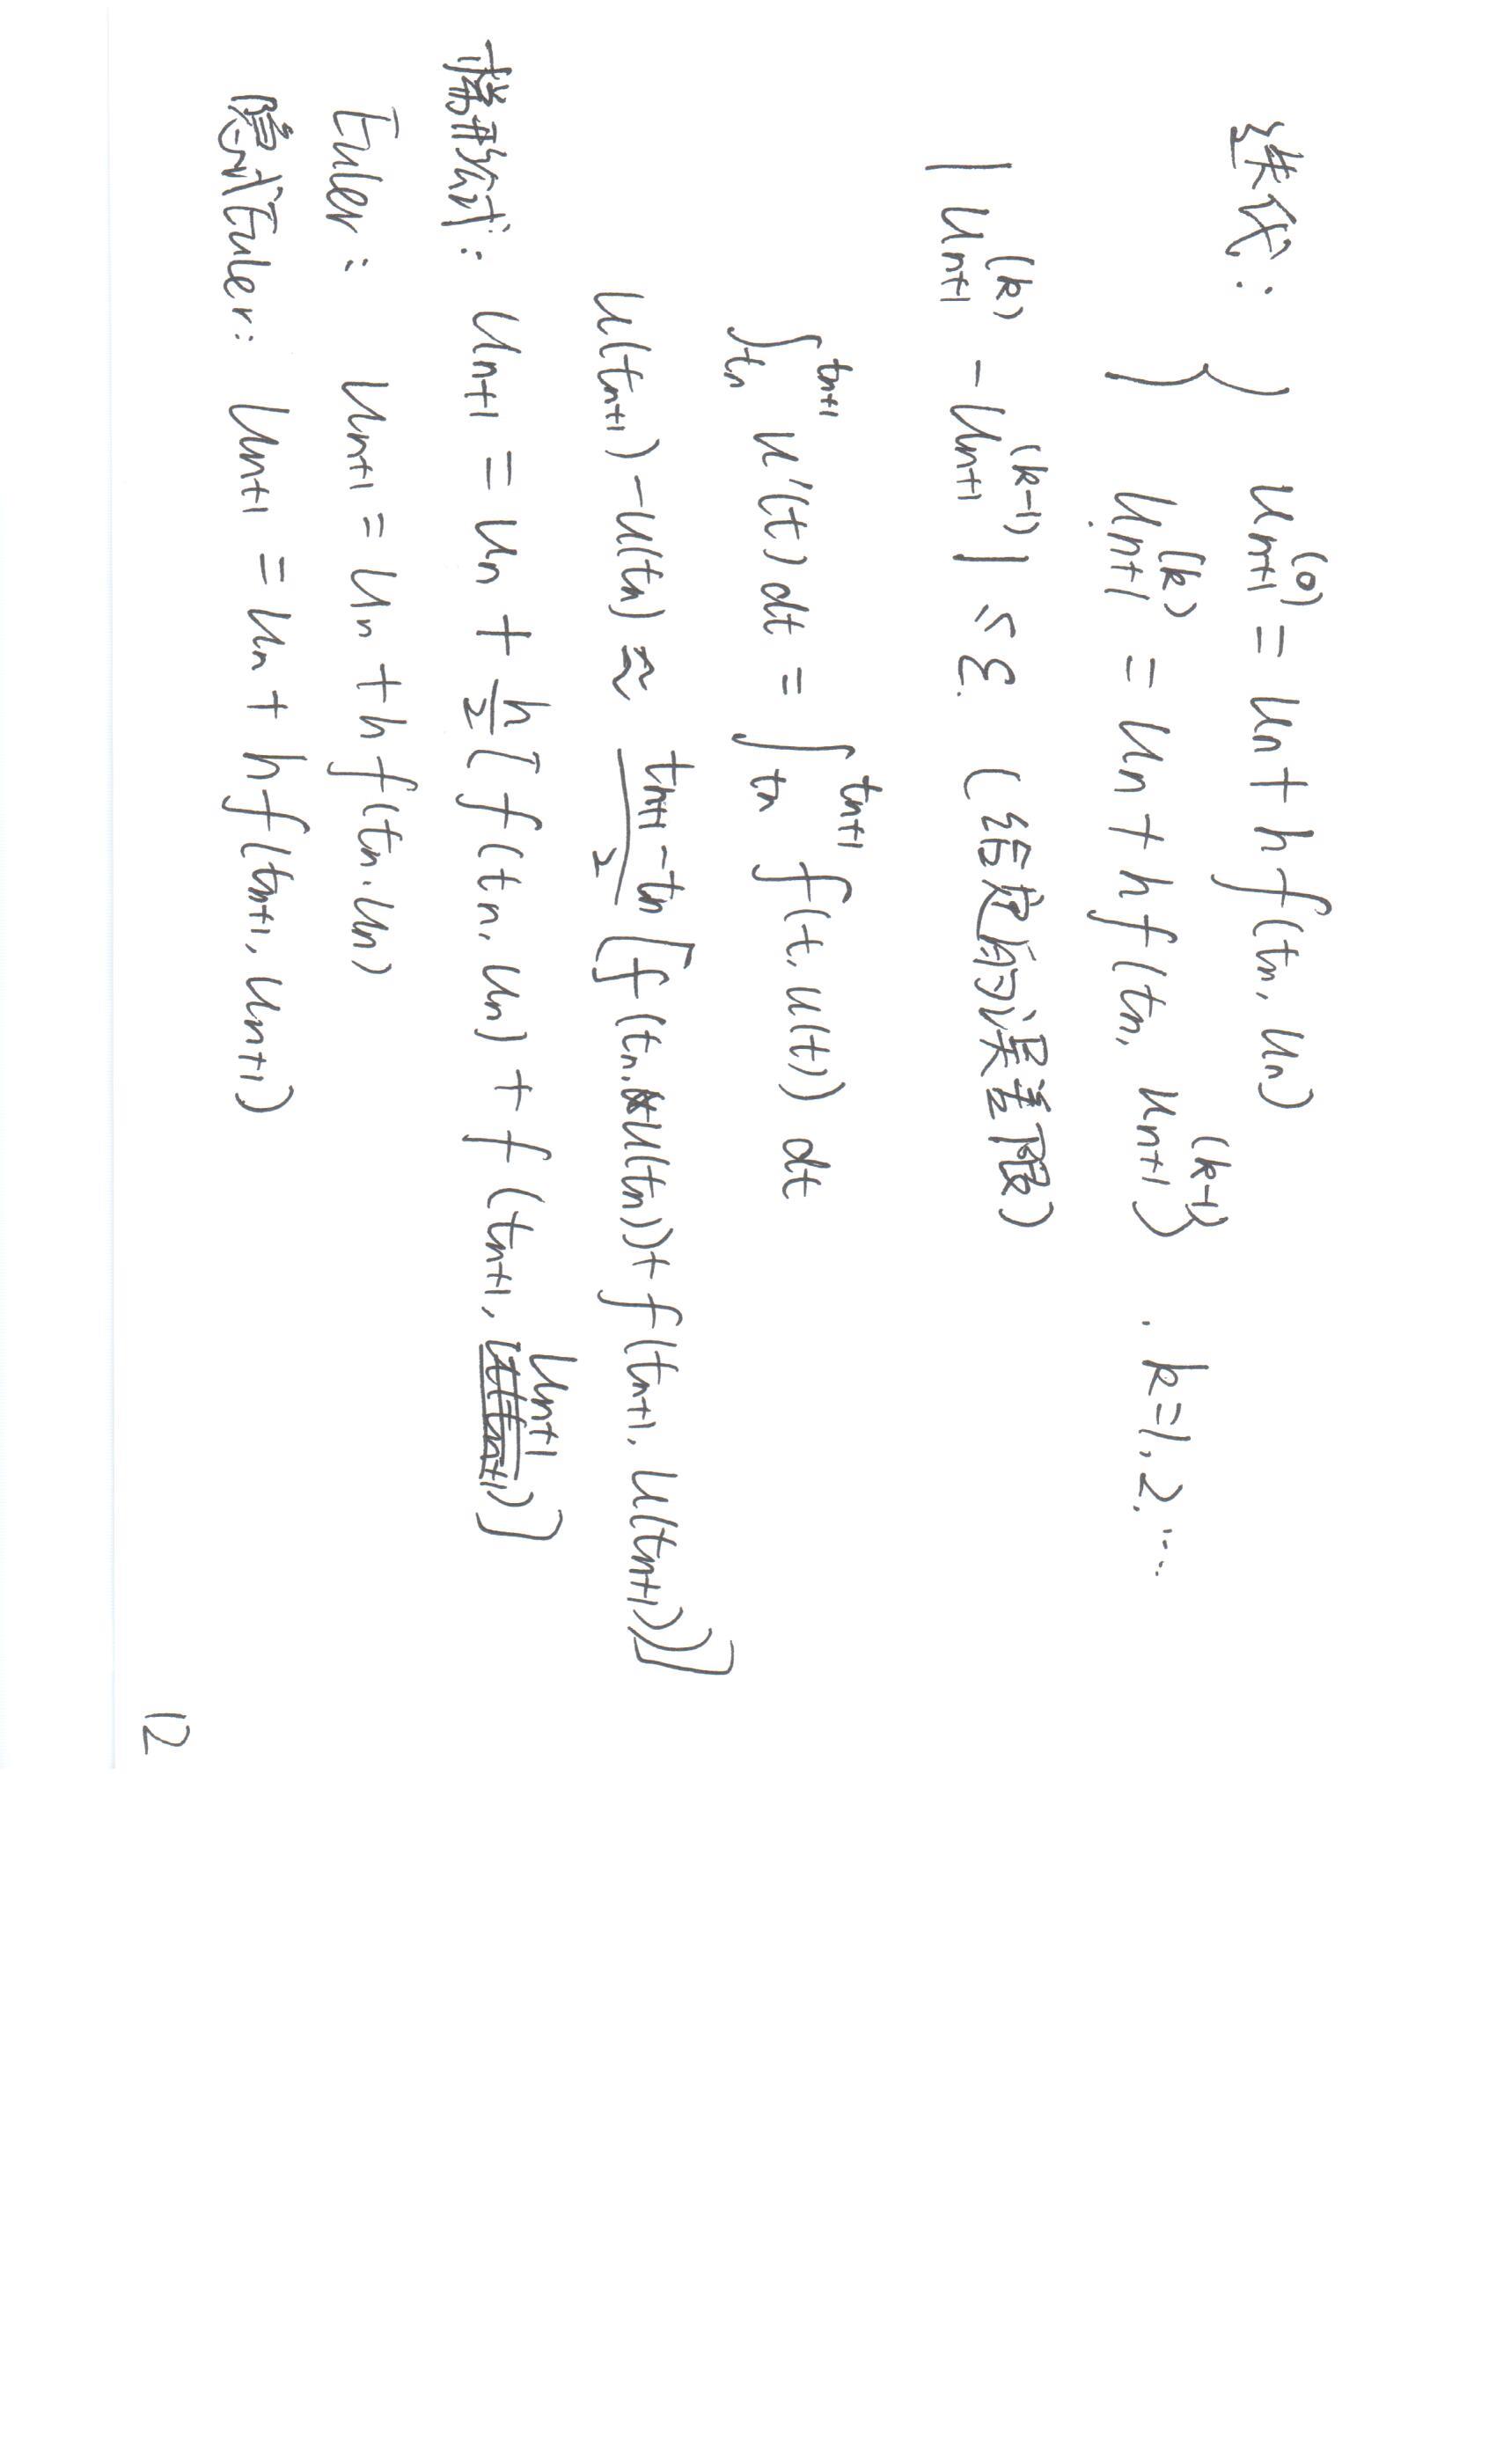 迭代: { u_{n+1}^{(0)} = u_n + h f(t_n, u_n)
u_{n+1}^{(k)} = u_n + h f(t_n, u_{n+1}^{(k-1)}) , k=1,2,…
|u_{n+1}^{(k)} - u_{n+1}^{(k-1)}| ≤ ε. (给定的误差限)
∫_{t_n}^{t_{n+1}} u'(t) dt = ∫_{t_n}^{t_{n+1}} f(t, u(t)) dt
u(t_{n+1}) - u(t_n) ≈ \frac{t_{n+1} - t_n}{2} [f(t_n, u(t_n)) + f(t_{n+1}, u(t_{n+1}))]
梯形公式: u_{n+1} = u_n + \frac{h}{2} [f(t_n, u_n) + f(t_{n+1}, u_{n+1})]
Euler: u_{n+1} = u_n + h f(t_n, u_n)
隐式Euler: u_{n+1} = u_n + h f(t_{n+1}, u_{n+1})
12